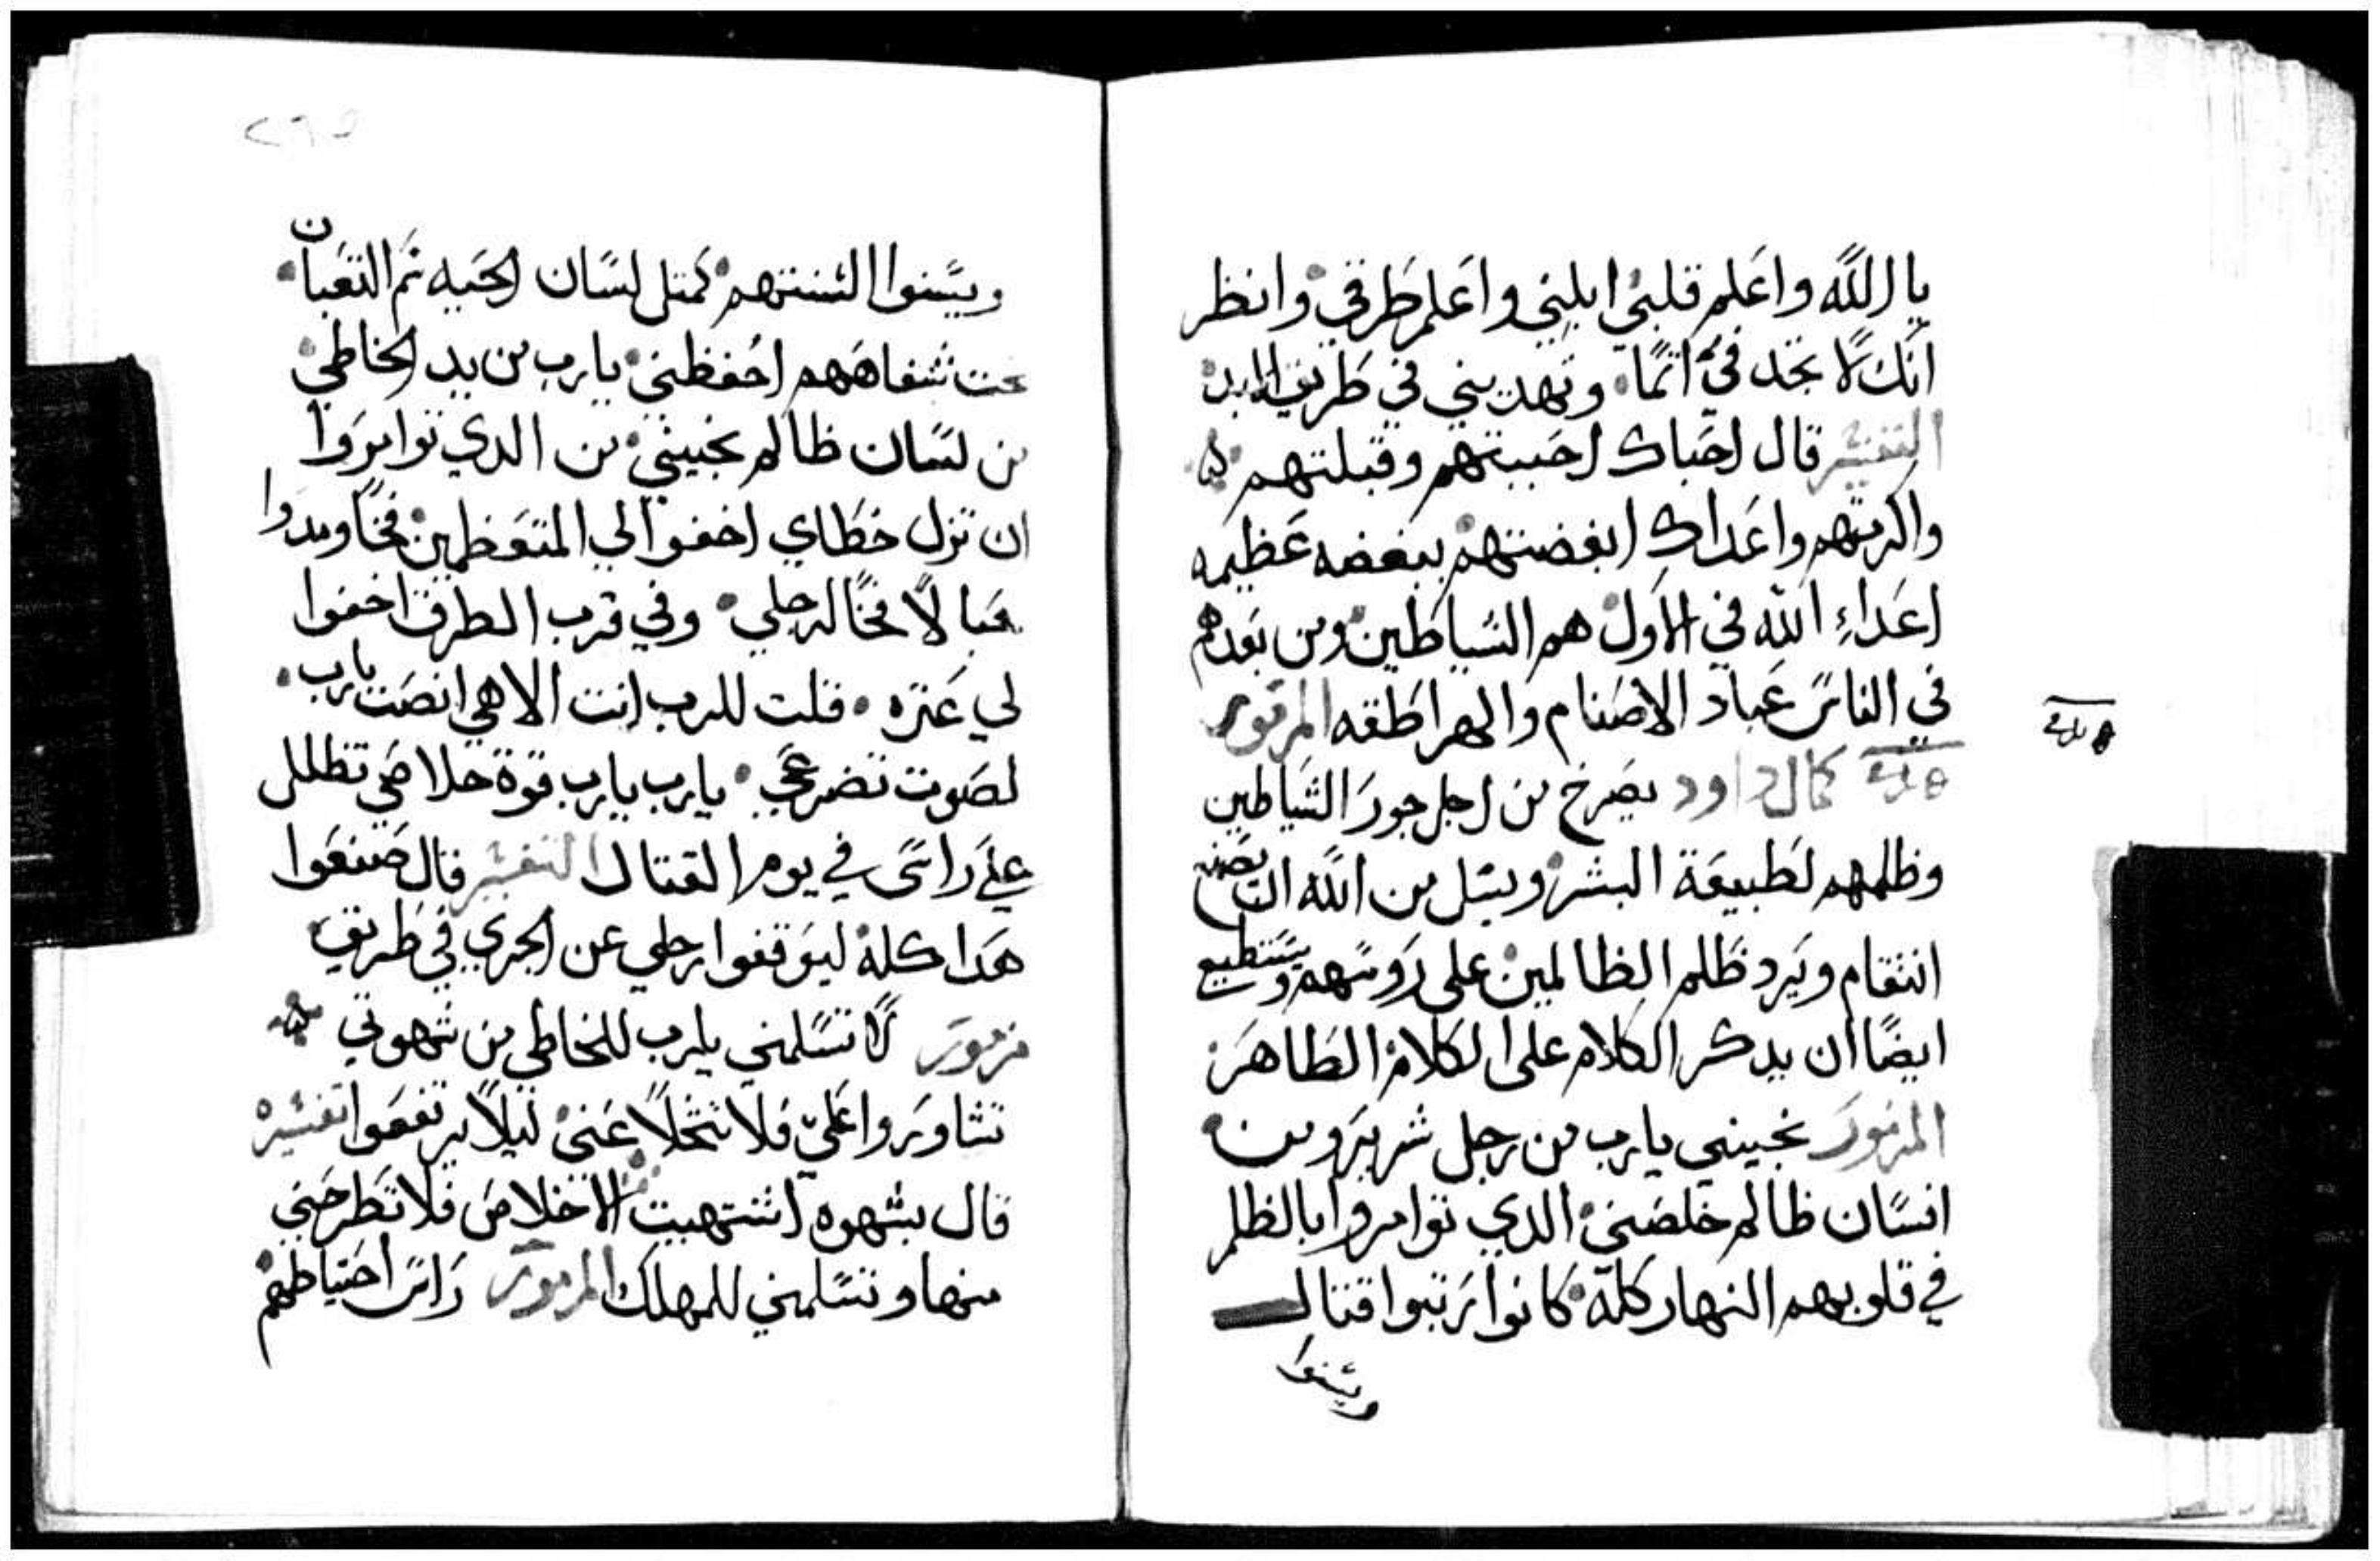 يا الله واعلم قلبي ابليني واعلم طرقي وانظر
انك لا تجد فيّ اثمًا وتهديني في طريق الابد
التفسير قال احباك احببتهم وقبلتهم
واكرمتهم واعداك ابغضتهم ببغضه عظيمه
اعداءِ الله في الاول هم الشياطين ومن بعدهم
في الناس عباد الاصنام والهراطقه المزمور
كمال داود يصرخ من اجل جور الشياطين
وظلمهم لطبيعة البشر ويسل من الله ان يصنع
انتقام ويرد ظلم الظالمين على روسهم ويستطيع
ايضًا ان يدكر الكلام على الكلام الظاهر
المزمور نجيني يارب من رجل شرير ومن
انسان ظالم خلصني الدي توامروا بالظلم
في قلوبهم النهار كله كانوا يرتبوا قتال
ويسنوا
٢٦٥
ويسنوا السنتهم كمثل لسان الحيه ثم الثعبان
تحت شفاههم احفظني يارب من يد الخاطي
من لسان ظالم نجيني من الدي توامروا
ان تزل خطاي اخفوا لي المتعظمين فخًا ومدوا
حبالًا فخًا لرجلي وفي قرب الطرق اخفوا
لي عثره قلت للرب انت الاهي انصت يارب
لصوت تضرعي يارب يارب قوة خلاصي تظلل
على راسي في يوم القتال التفسير قال صنعوا
هدا كله ليوقفوا رجلي عن الجري في طريق
مزمور لا تسلمني يارب للخاطي من شهوتي
تشاوروا عليّ فلا تتخلا عني ليلا يرتفعوا تفسير
قال بشهوه اشتهيت الاخلاص فلا تطرحني
منها وتسلمني للمهلك المزمور راس احتياطهم